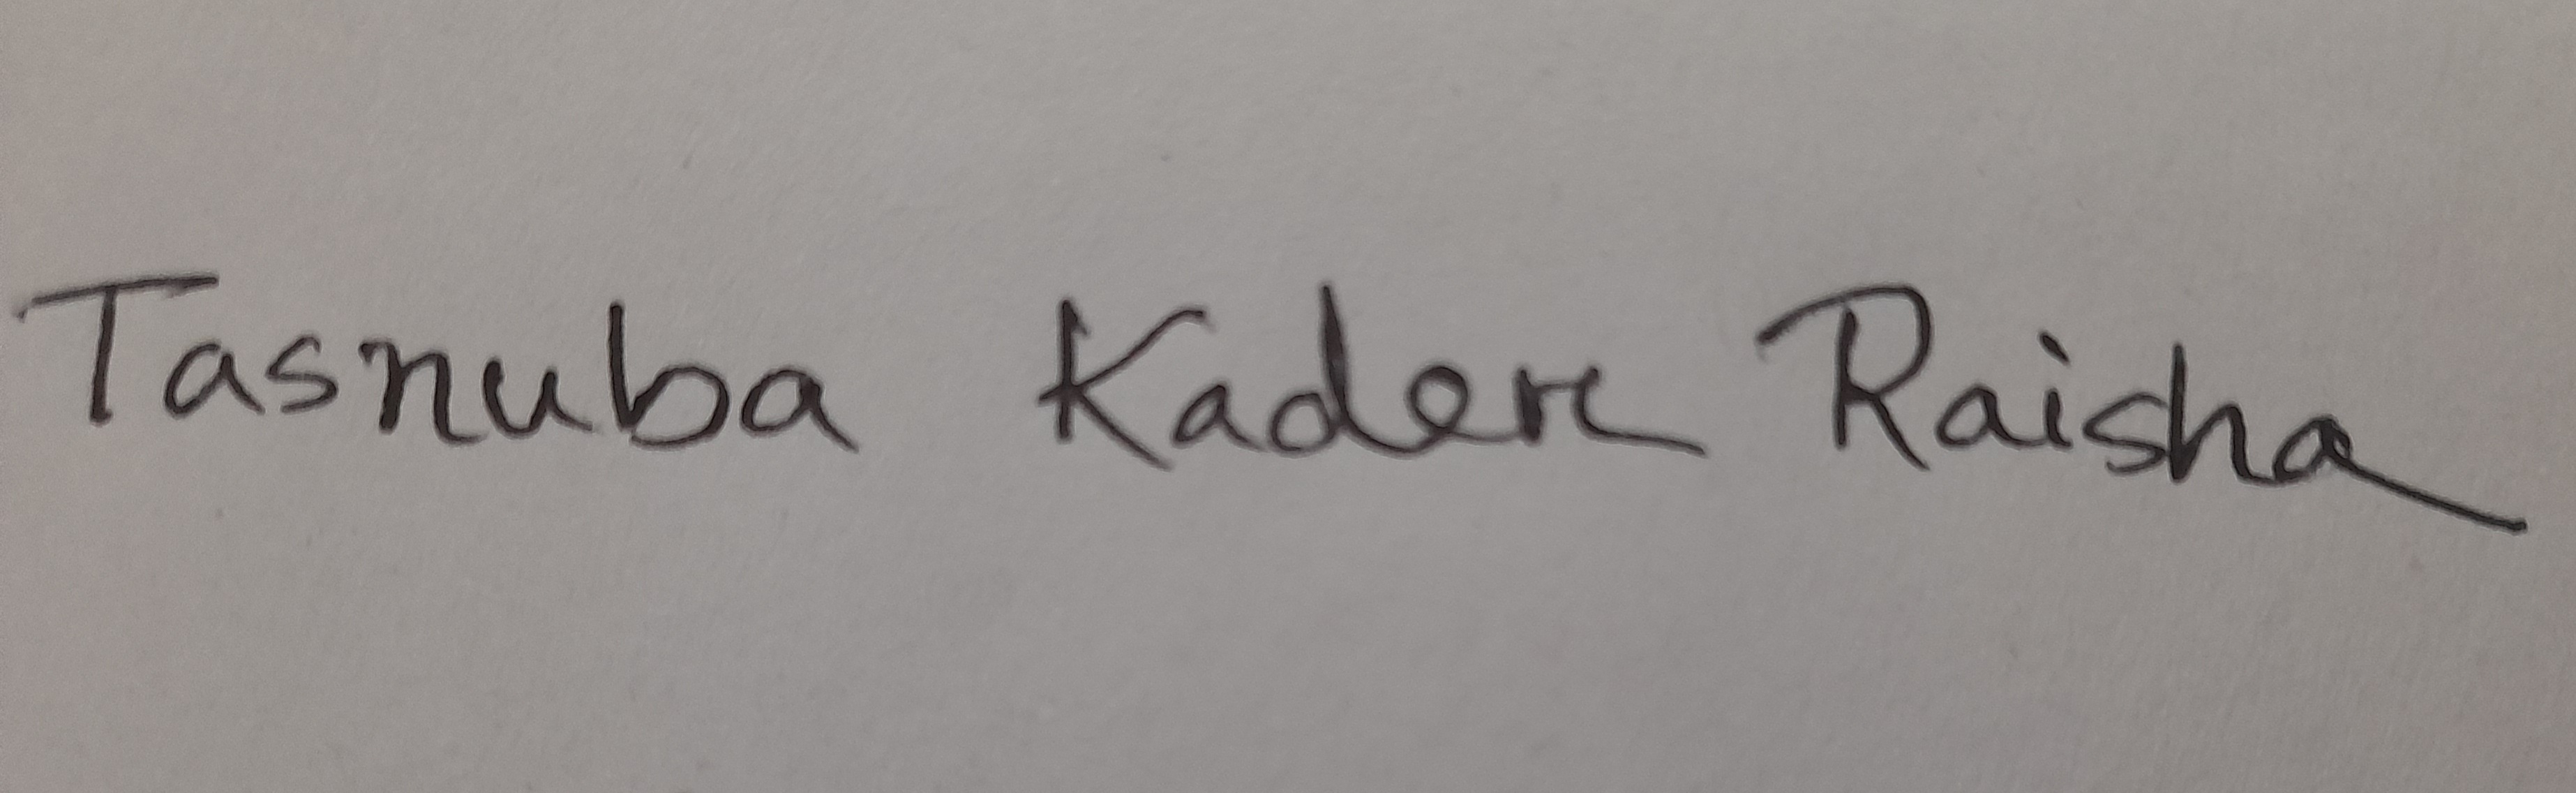 Tasnuba Kader Raisha